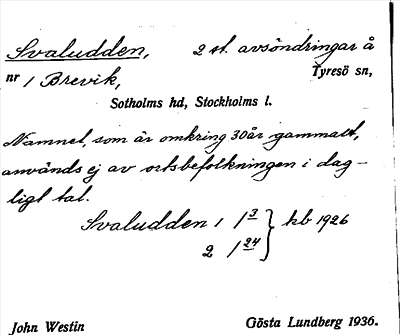 Svaludden, 2 st. avsöndringar å
nr 1 Brevik, Tyresö sn,
Sotholms hd, Stockholms l.
Namnet, som är omkring 30 år gammalt,
används ej av ortsbefolkningen i dag-
ligt tal.
Svaludden 1 1/3 } kb 1926
2 1/24
John Westin Gösta Lundberg 1936.